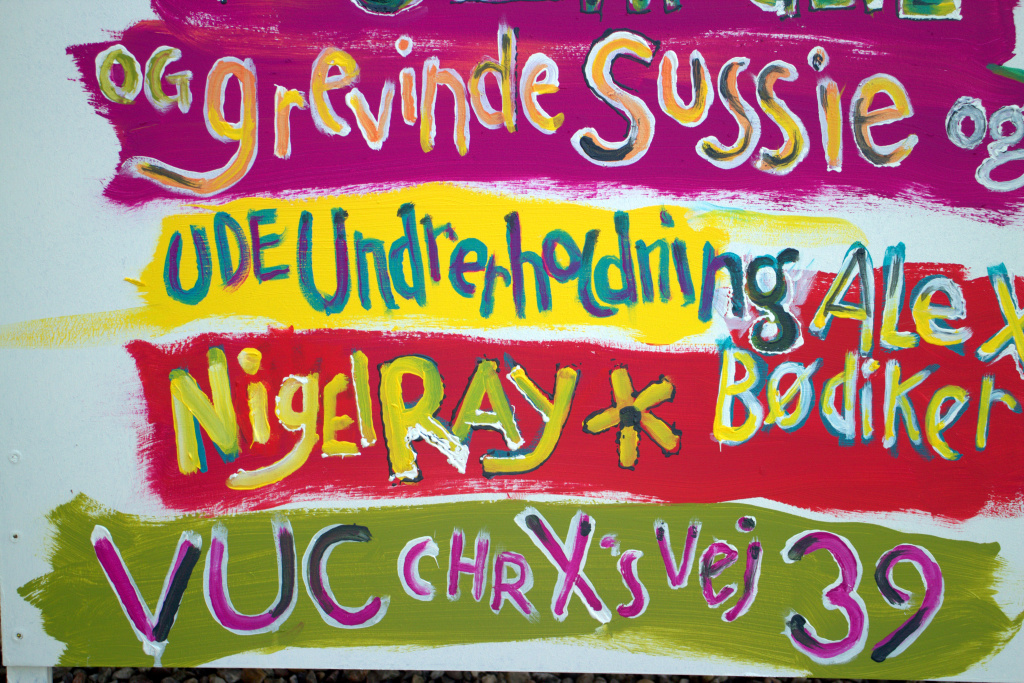 og grevinde Sussie og
UDE Undrerholdning ALEX
NigelRAY * Bødiker
VUC CHR X's Vej 39